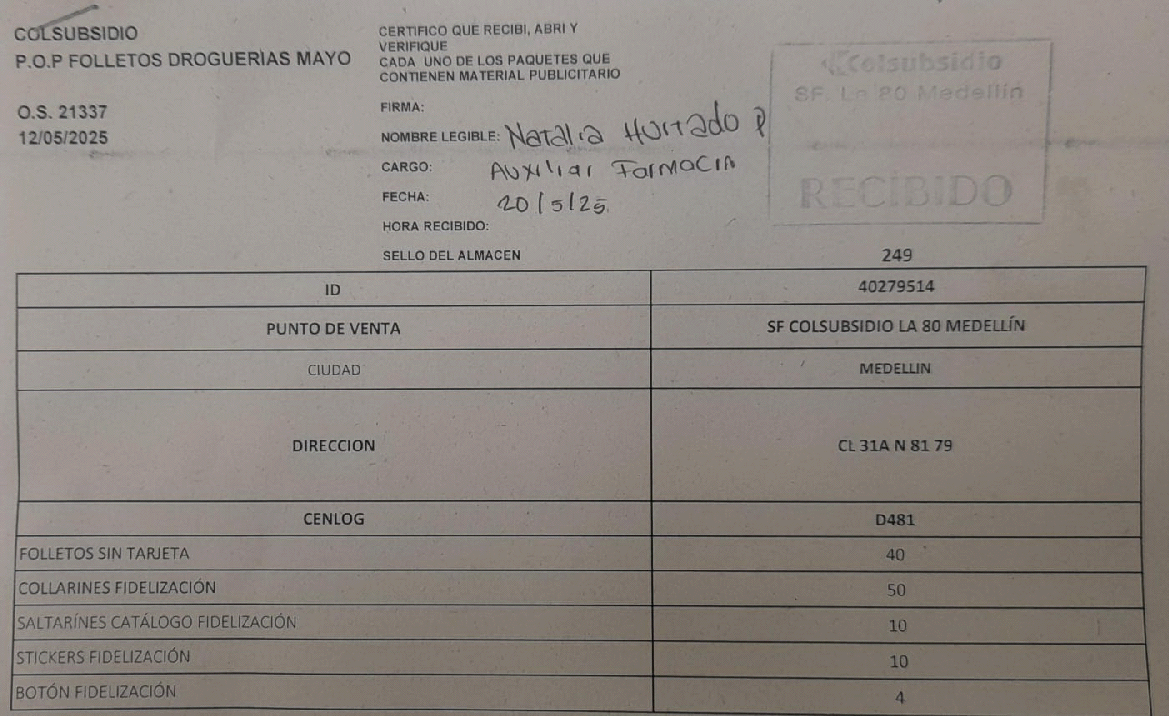 COLSUBSIDIO
P.O.P FOLLETOS DROGUERIAS MAYO
O.S. 21337
12/05/2025
CERTIFICO QUE RECIBI, ABRI Y
VERIFIQUE
CADA UNO DE LOS PAQUETES QUE
CONTIENEN MATERIAL PUBLICITARIO
FIRMA:
NOMBRE LEGIBLE: Natalia Hurtado P
CARGO: Auxiliar Farmacia
FECHA: 20/5/25.
HORA RECIBIDO:
SELLO DEL ALMACEN
Colsubsidio
SF. La 80 Medellín
RECIBIDO
249
ID 40279514
PUNTO DE VENTA SF COLSUBSIDIO LA 80 MEDELLÍN
CIUDAD MEDELLIN
DIRECCION CL 31A N 81 79
CENLOG D481
FOLLETOS SIN TARJETA 40
COLLARINES FIDELIZACIÓN 50
SALTARÍNES CATÁLOGO FIDELIZACIÓN 10
STICKERS FIDELIZACIÓN 10
BOTÓN FIDELIZACIÓN 4